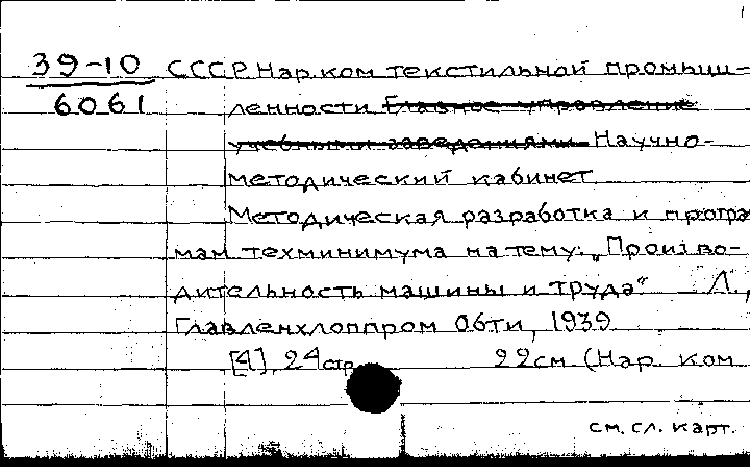 39-10 СССР. Нар. ком текстильной промыш-
6061 ленности Главное управление
учебными заведениями Научно-
методический кабинет
Методическая разработка и програ
мам техминимума на тему: „Произво-
дительность машины и труда“ Л.,
Главленхлоппром Обти, 1939
[4], 24 стр. 22 см (Нар. ком
см. сл. карт.